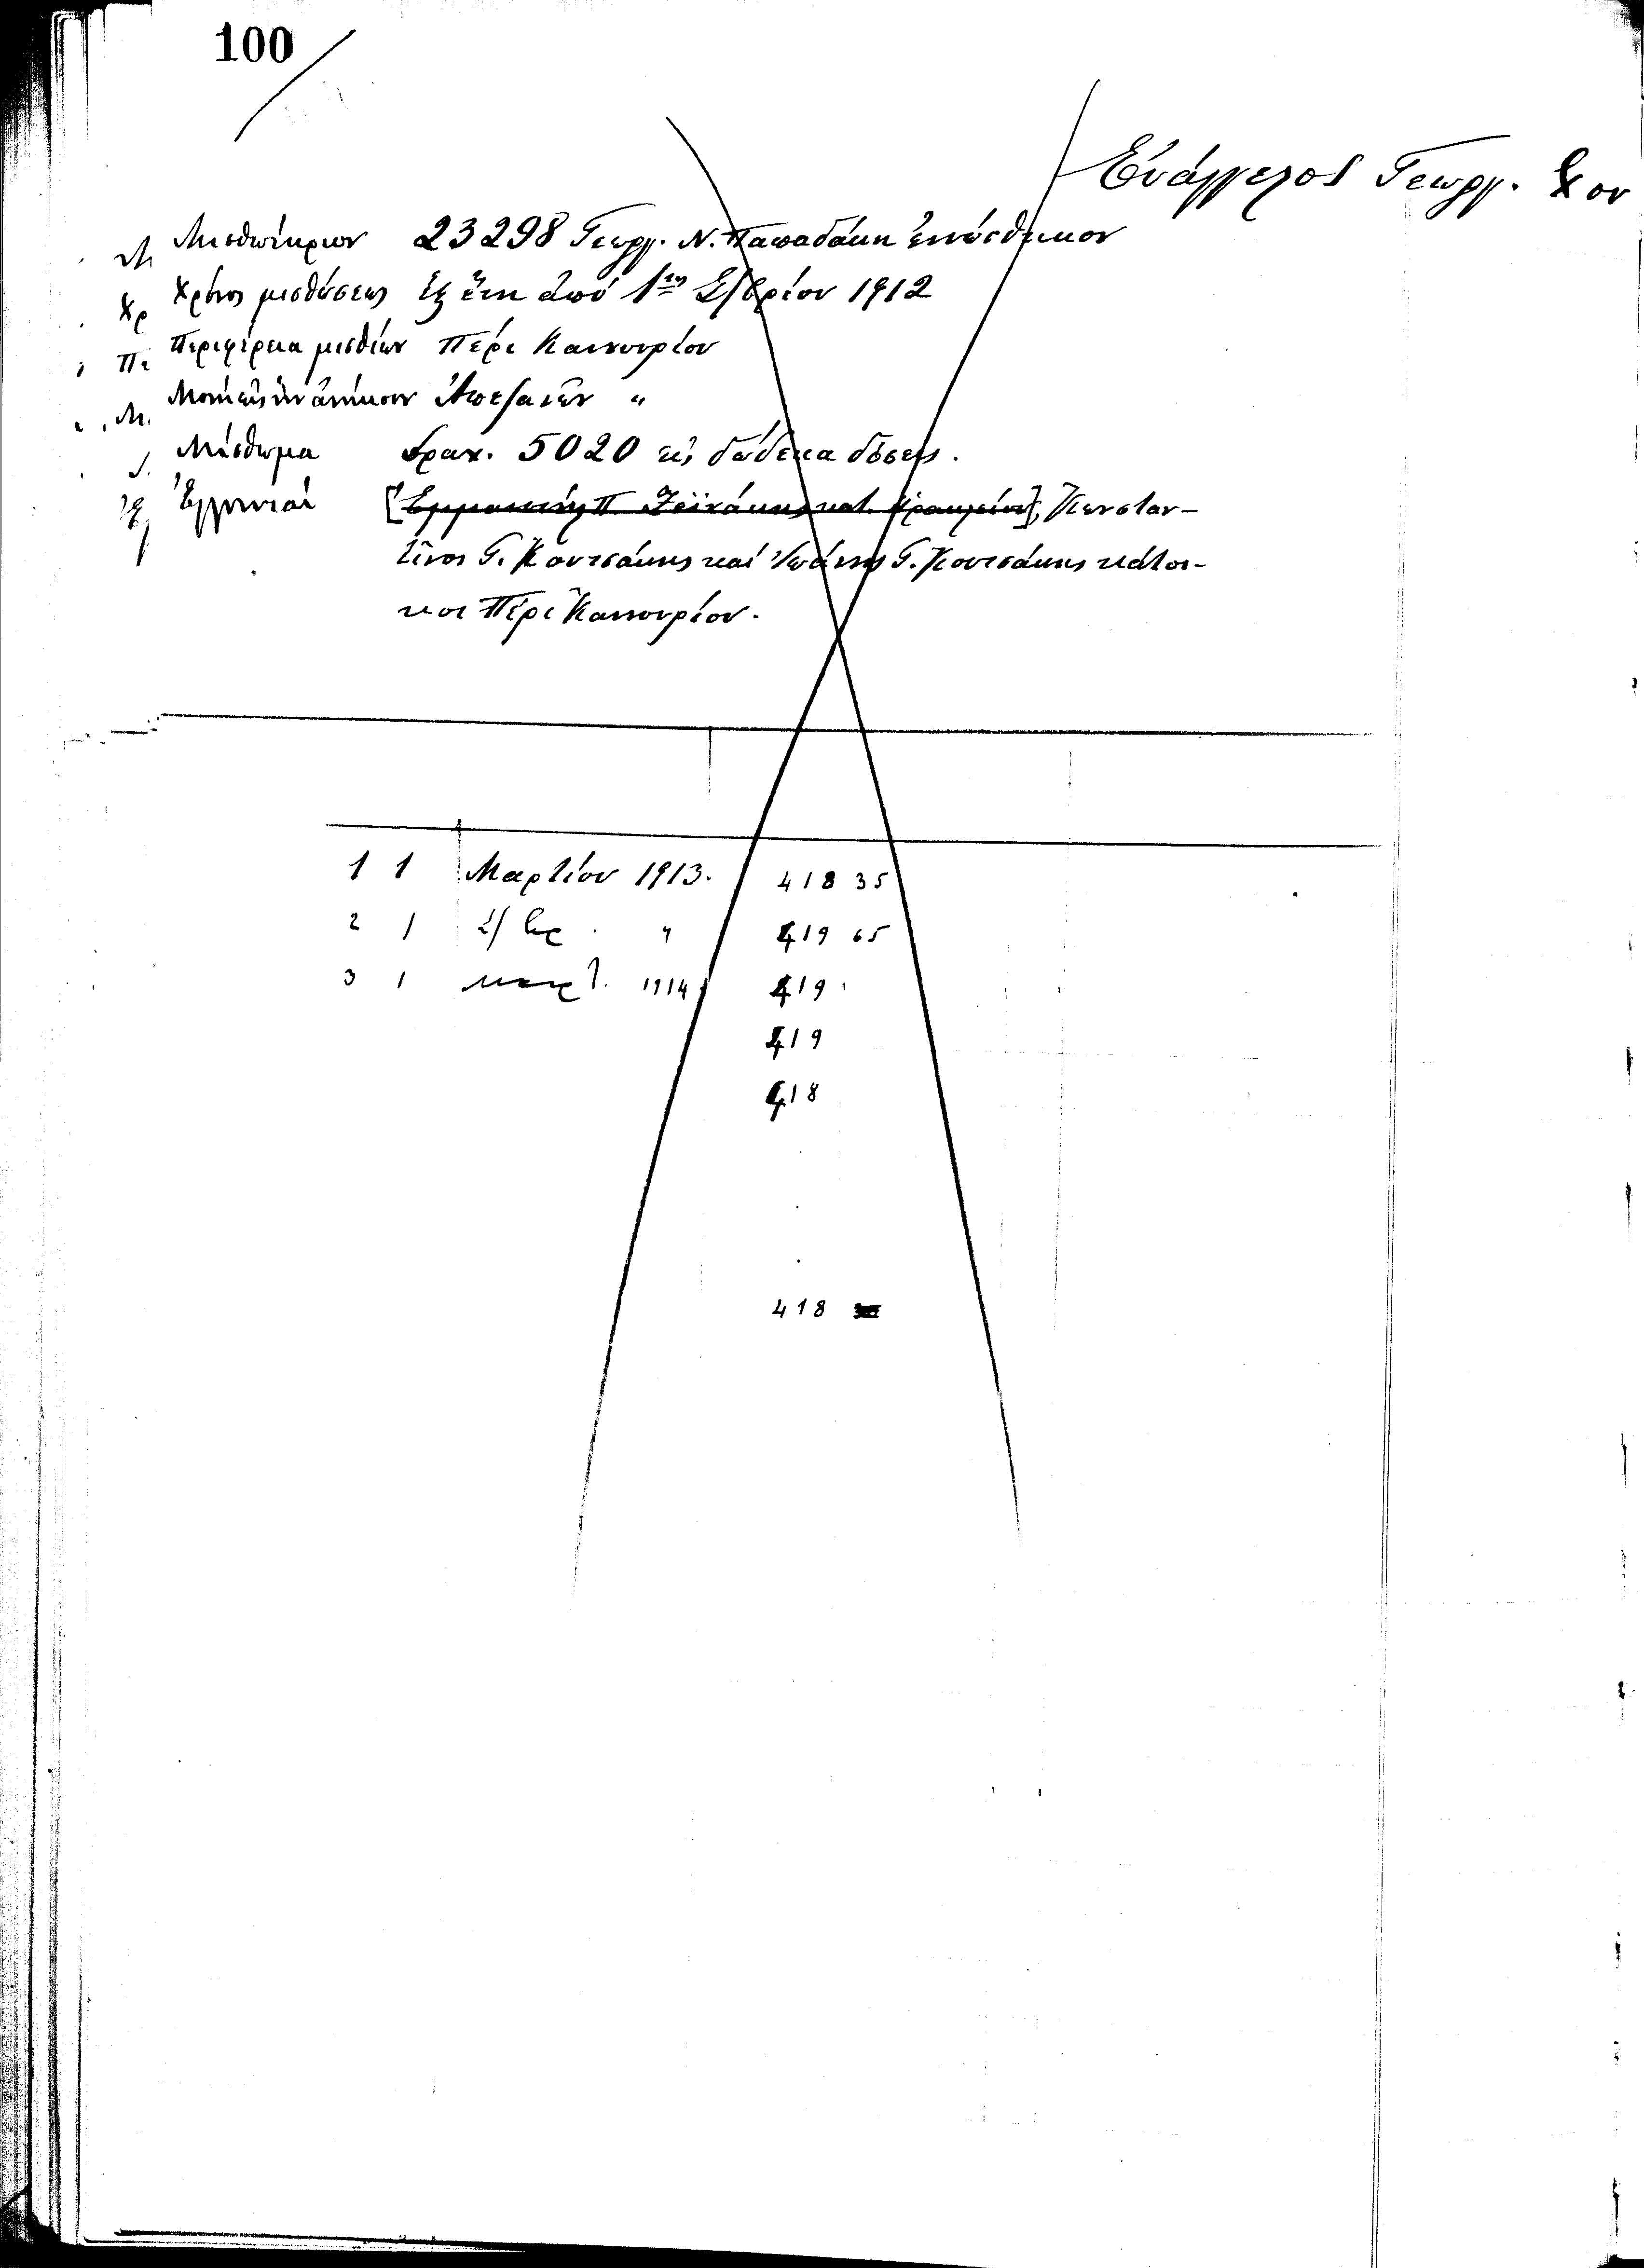 100
Εὐάγγελος Γεωργ. Χου
Μισθωτήριον 23298 Γεωργ. Ν. Παπαδάκη
Χρόνος μισθώσεως ἕξ ἔτη ἀπό 1ης Σ/βρίου 1912
Περιφέρεια μισθίων Πέρι Καινουρίου
Μονή εἰς ἥν ἀνήκουν Ἀπεζανῶν "
Μίσθωμα δραχ. 5020 εἰς δώδεκα δόσεις.
Ἐγγυηταί Κωνσταν-
τῖνος Γ. Κουτσάκης καί Ἰωάννης Γ. Κουτσάκης κάτοι-
κοι Πέρι Καινουρίου.
1 1 Μαρτίου 1913. 418 35
2 1 Σ/βρ. " 419 65
3 1 Μαρτ. 1914 419
419
418
418